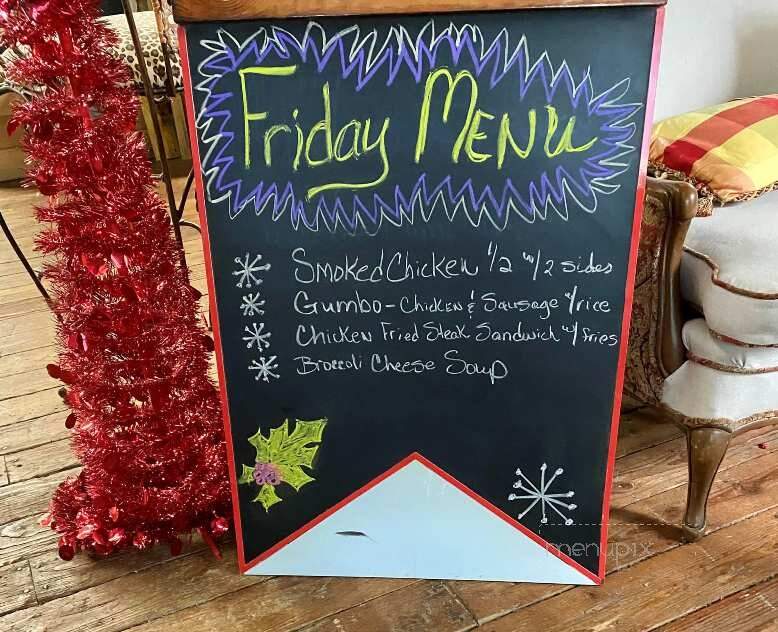 Friday MENU
Smoked Chicken 1/2 w/ 2 sides
Gumbo - Chicken & Sausage w/ rice
Chicken Fried Steak Sandwich w/ fries
Broccoli Cheese Soup
menupix